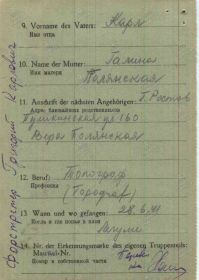 9. Vorname des Vaters: Карл
Имя отца
10. Name der Mutter: Галина
Имя матери Полянская
11. Anschrift der nächsten Angehörigen: Г. Ростов
Адрес ближайших родственников
Пушкинская ул 160
Вера Полянская
12. Beruf: Топограф
Профессия
(Topograf)
13. Wann und wo gefangen: 28.6.41
Когда и где попал в плен
14. Nr. der Erkennungsmarke des eigenen Truppenteils:
Номер в собственной части
Григорий Карлович